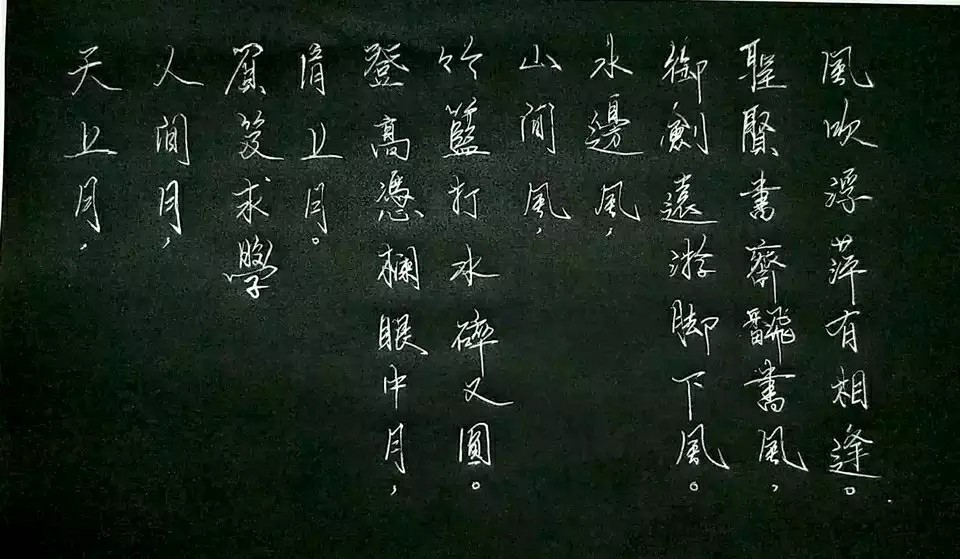 天上月，
人間月，
負笈求學
肩上月。
登高憑欄眼中月，
竹籃打水碎又圓。
山間風，
水邊風，
御劍遠游脚下風。
聖賢書齋飜書風，
風吹浮萍有相逢。